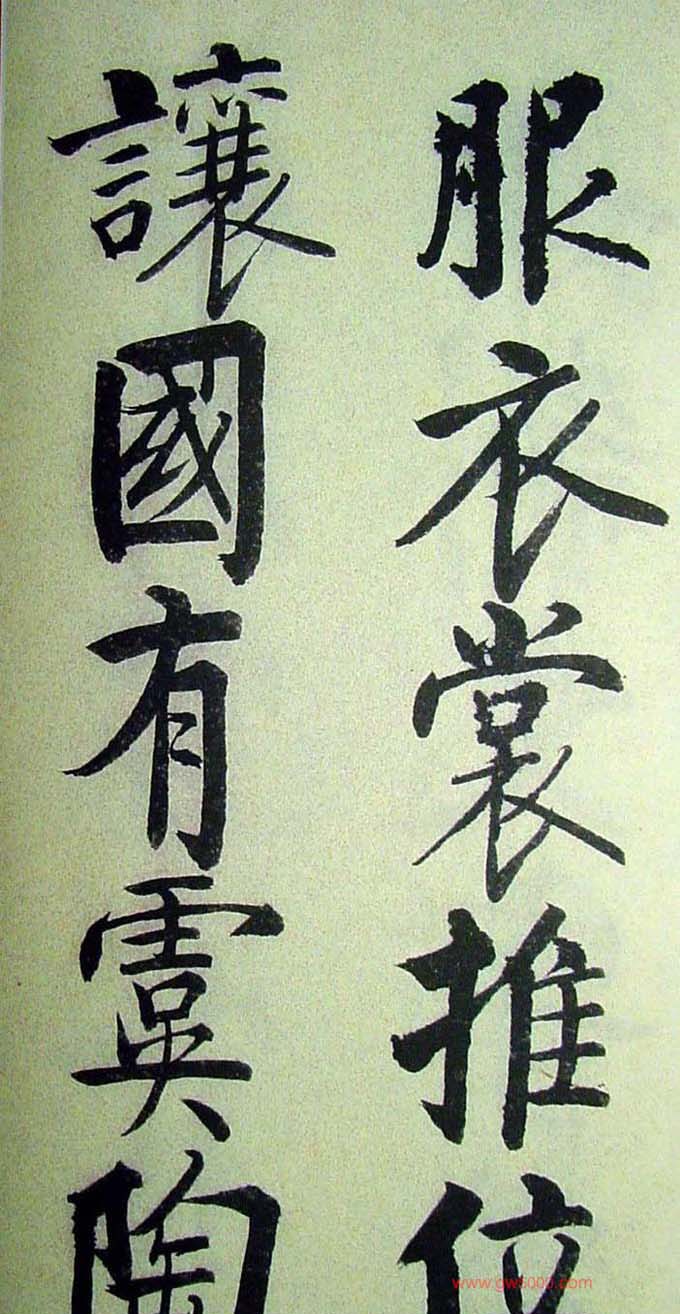 服衣裳推位
讓國有虞陶
www.gw5000.com